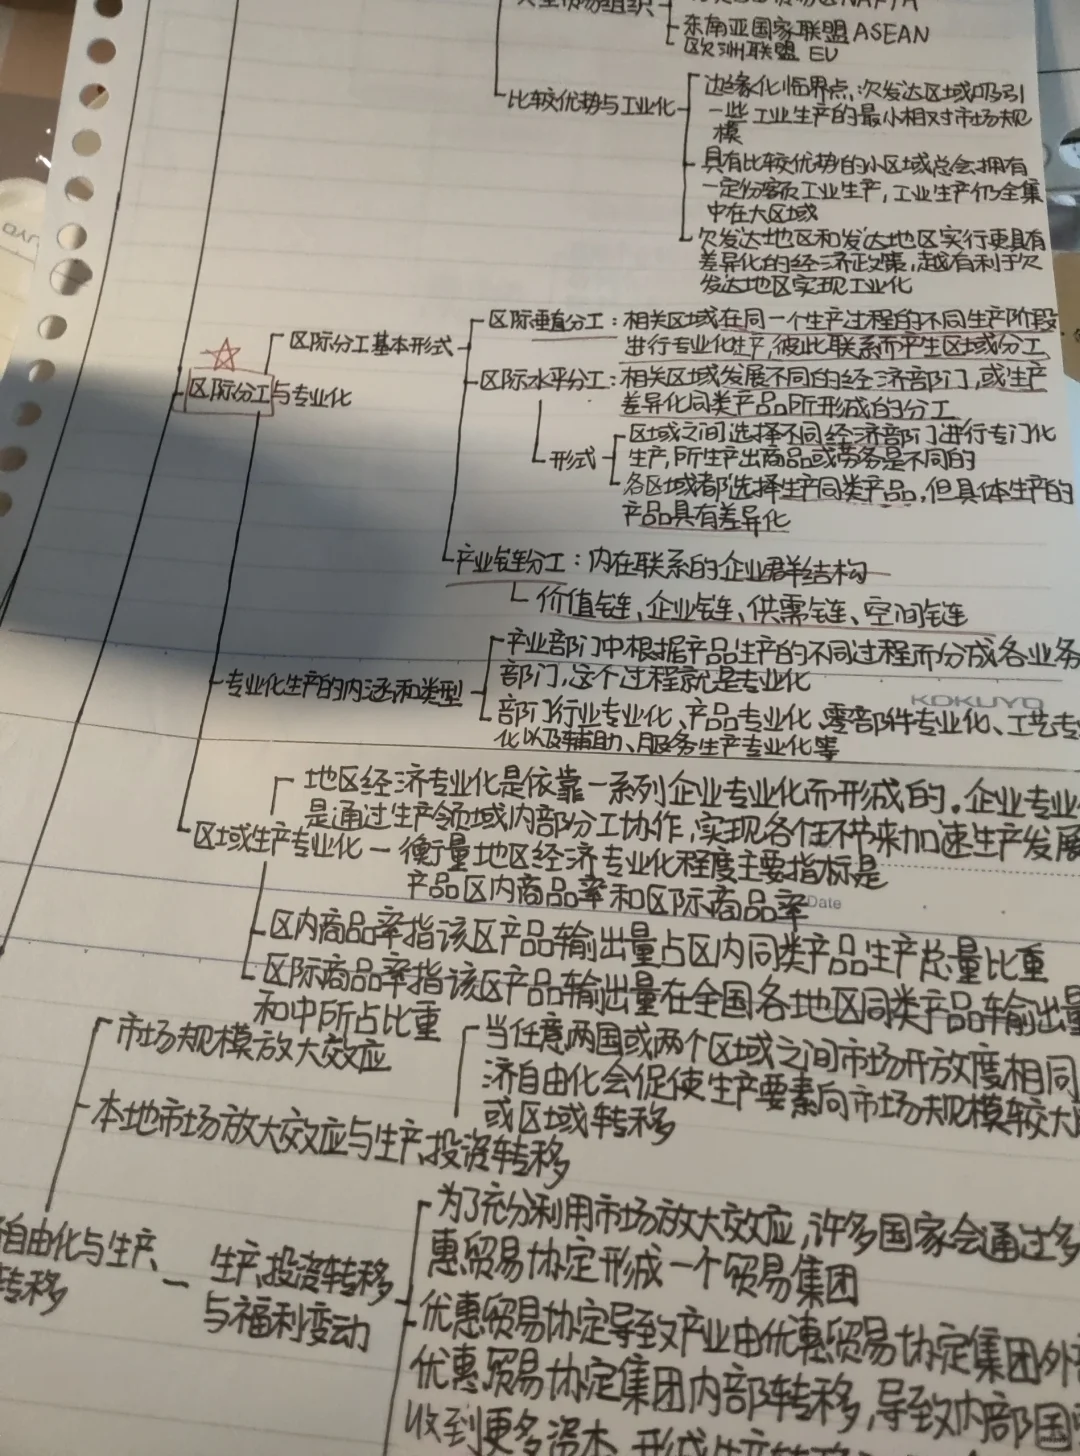 类型贸易组织
NAFTA
东南亚国家联盟 ASEAN
欧洲联盟 EU
比较优势与工业化
边缘化临界点:欠发达区域吸引
一些工业生产的最小相对市场规
模
具有比较优势的小区域总会拥有
一定份额工业生产,工业生产仍全集
中在大区域
欠发达地区和发达地区实行更具有
差异化的经济政策,越有利于欠
发达地区实现工业化
区际分工与专业化
区际分工基本形式
区际垂直分工:相关区域在同一个生产过程的不同生产阶段
进行专业化生产,彼此联系而产生区域分工
区际水平分工:相关区域发展不同的经济部门,或生产
差异化同类产品所形成的分工
形式
区域之间选择不同经济部门进行专门化
生产,所生产出商品或劳务是不同的
各区域都选择生产同类产品,但具体生产的
产品具有差异化
产业链分工:内在联系的企业群结构
价值链、企业链、供需链、空间链
专业化生产的内涵和类型
产业部门中根据产品生产的不同过程而分成各业务
部门,这个过程就是专业化
KOKUYO
部门行业专业化、产品专业化、零部件专业化、工艺专
化以及辅助、服务生产专业化等
区域生产专业化
地区经济专业化是依靠一系列企业专业化而形成的。企业专业
是通过生产领域内部分工协作,实现各个环节来加速生产发展
衡量地区经济专业化程度主要指标是
产品区内商品率和区际商品率
Date
区内商品率指该区产品输出量占区内同类产品生产总量比重
区际商品率指该区产品输出量在全国各地区同类产品输出量
和中所占比重
市场规模放大效应
本地市场放大效应与生产、投资转移
当任意两国或两个区域之间市场开放度相同
济自由化会促使生产要素向市场规模较大
或区域转移
自由化与生产、
转移
生产、投资转移
与福利变动
为了充分利用市场放大效应,许多国家会通过多
惠贸易协定形成一个贸易集团
优惠贸易协定导致产业由优惠贸易协定集团外
优惠贸易协定集团内部转移,导致内部国
收到更多资本,形成生产转移